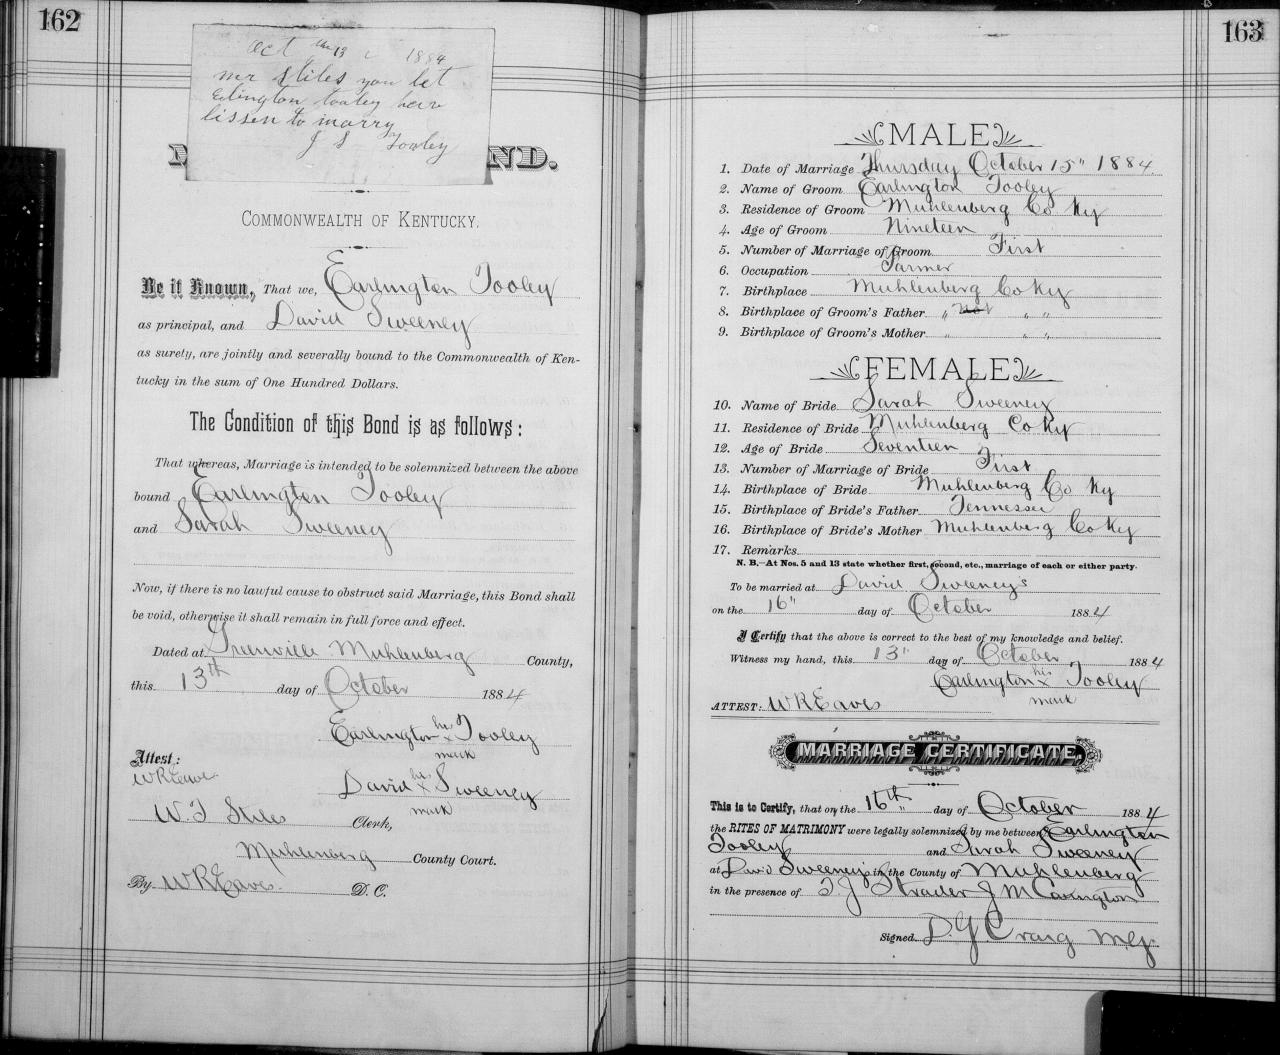 162
Oct the 13 1884
mr Stiles you let
Erlington tooley have
lissen to marry
J S Tooley
ND.
COMMONWEALTH OF KENTUCKY.
Be it Known, That we, Earlington Tooley
as principal, and David Sweeney
as surety, are jointly and severally bound to the Commonwealth of Ken-
tucky in the sum of One Hundred Dollars.
The Condition of this Bond is as follows:
That whereas, Marriage is intended to be solemnized between the above
bound Earlington Tooley
and Sarah Sweeney
Now, if there is no lawful cause to obstruct said Marriage, this Bond shall
be void, otherwise it shall remain in full force and effect.
Dated at Greenville Muhlenberg County,
this 13th day of October 1884
Earlington his x mark Tooley
Attest:
WREaves
David his x mark Sweeney
W. T Stiles Clerk,
Muhlenberg County Court.
By WREaves. D. C.
163
MALE
1. Date of Marriage Thursday October 15" 1884.
2. Name of Groom Earlington Tooley
3. Residence of Groom Muhlenberg Co Ky
4. Age of Groom Nineteen
5. Number of Marriage of Groom First
6. Occupation Farmer
7. Birthplace Muhlenberg Co Ky
8. Birthplace of Groom's Father " " "
9. Birthplace of Groom's Mother " " "
FEMALE
10. Name of Bride Sarah Sweeney
11. Residence of Bride Muhlenberg Co Ky
12. Age of Bride Seventeen
13. Number of Marriage of Bride First
14. Birthplace of Bride Muhlenberg Co Ky
15. Birthplace of Bride's Father Tennessee
16. Birthplace of Bride's Mother Muhlenberg Co Ky
17. Remarks
N. B.—At Nos. 5 and 13 state whether first, second, etc., marriage of each or either party.
To be married at David Sweeneys
on the 16" day of October 1884
I Certify that the above is correct to the best of my knowledge and belief.
Witness my hand, this 13" day of October 1884
Earlington his x mark Tooley
ATTEST: WREaves
MARRIAGE CERTIFICATE.
This is to Certify, that on the 16th day of October 1884
the RITES OF MATRIMONY were legally solemnized by me between Earlington
Tooley and Sarah Sweeney
at David Sweeneys in the County of Muhlenberg
in the presence of T J Strader J M Carington
Signed D. G Craig M.G.